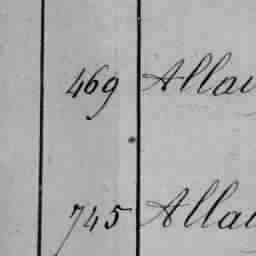 469 Allai
745 Allai